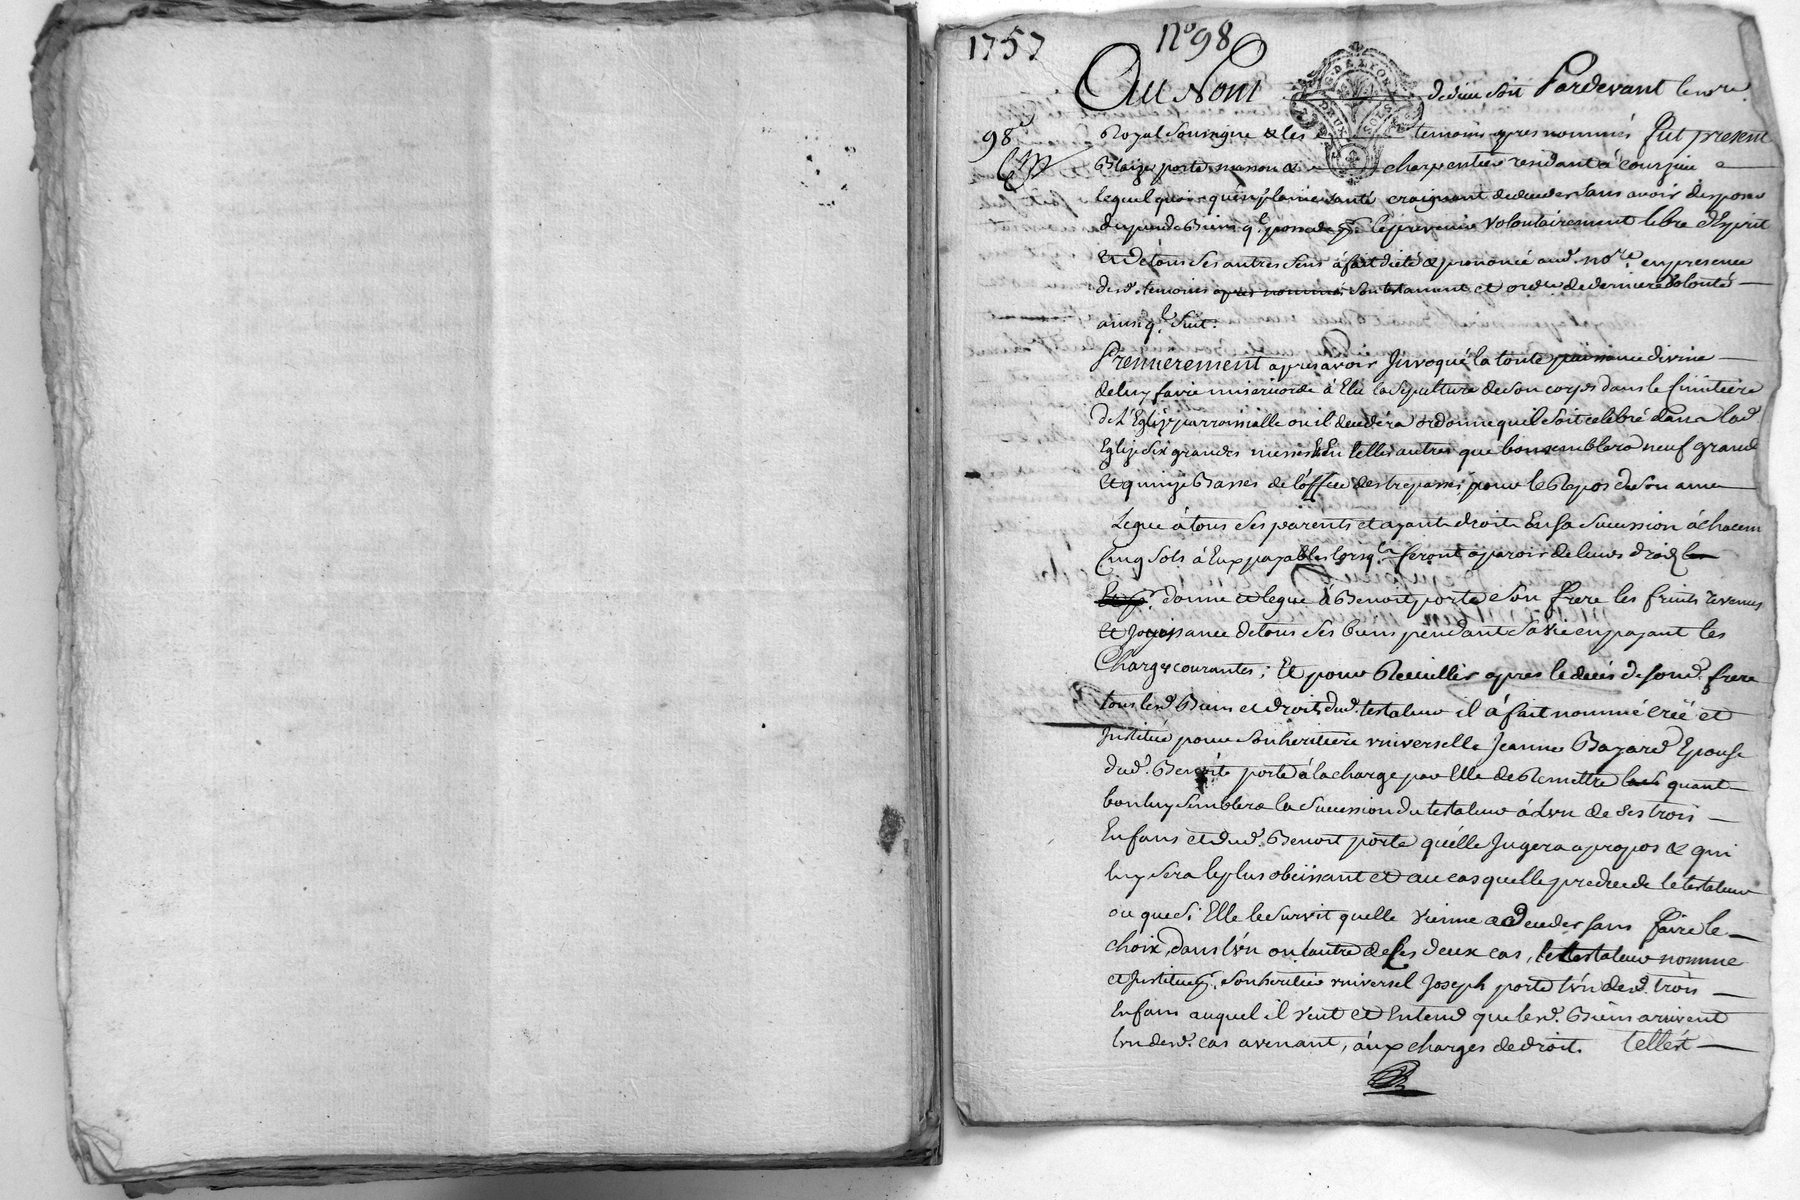 1757 N° 98
Au Nom de dieu soit Pardevant le no.re
98e Royal Soussigné & les temoins apres nommés fut present
G. DE LYON DEUX SOLS
Blaize porte masson & charpentier residant à courzieu
lequel quoi qu'en pleine santé craignant de deceder sans avoir disposé
du peu de Biens q.l possede volontairement libre d'Esprit
et de tous ses autres sens à fait dicté & prononcé aud. no.re en presence
desd. temoins apres nommés son testament et ordce de derniere volonté
ainsi q.l suit.
Premierement apres avoir Invoqué la toute puissance divine
de luy faire misericorde à Elu la sepulture de son corps dans le cimitiere
de L'Eglize parroissialle ou il decedera ordonne quil soit celebré dans lad.
Eglize six grandes messes Et En telles autres que bon semblera neuf grand
et quinze Basses de l'office des trepassés pour le Repos de son ame
Legue à tous ses parents et ayant droit En sa sucession à chacun
Cinq sols à Eux payables lorsq.ls feront aparoir de leurs droits
donne et legue à Benoit porte son frere les fruits revenus
et Joyissance de tous ses biens pendant sa vie en payant les
Charges courantes; Et pour Recuillir apres le décés de sond. frere
tous lesd. Biens et droits dud. testateur il à fait nommé créé et
Institué pour son heritiere universelle Jeanne Bazard Epouse
dud. Benoite porte à la charge par Elle de Remettre quant
bon luy semblera la Sucession du testateur à L'vn de ses trois
Enfans et dud. Benoit porte qu'élle Jugera apropos & qui
luy sera le plus obeissant et au cas quelle predecede le testateur
ou que si Elle le survit quelle vienne a deceder sans faire le
choix, dans l'vn ou l'autre de ses deux cas, le testateur nomme
et Institue son heritier vniversel Joseph porte l'vn desd. trois
Enfans auquel il veut et Entend que lesd. Biens arrivent
l'vn desd. cas avenant, aux charges de droit. tell'ést